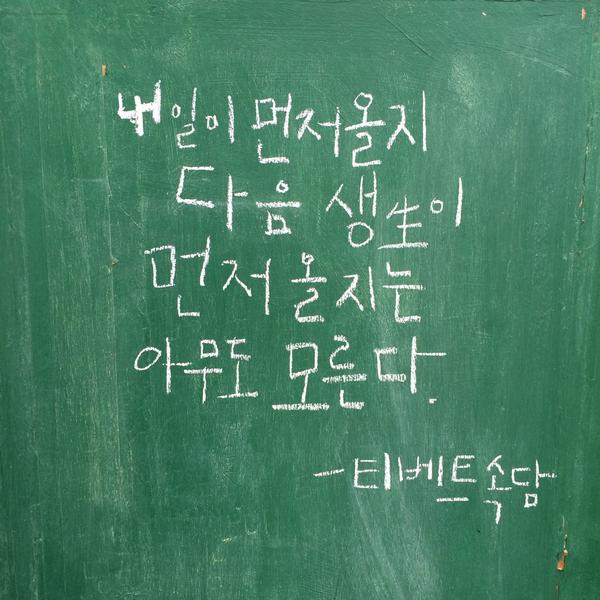 내일이 먼저올지
다음 생生이
먼저 올지는
아무도 모른다.
-티베트 속담